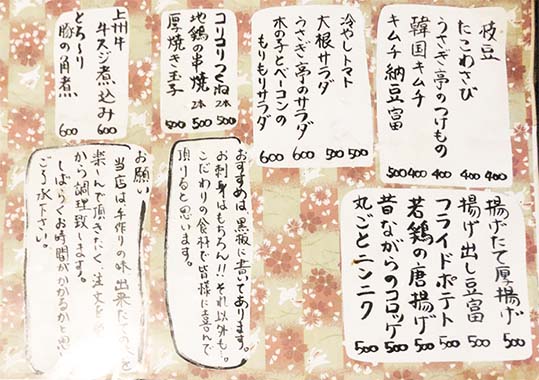 枝豆 400
たこわさび 400
うさぎ亭のつけもの 400
韓国キムチ 400
キムチ納豆富 500
冷やしトマト 500
大根サラダ 500
うさぎ亭のサラダ 600
木の子とベーコンの
もりもりサラダ 600
コリコリつくね 2本 500
地鶏の串焼 2本 500
厚焼き玉子 500
上州牛
牛スジ煮込み 600
とろ〜り
豚の角煮 600
揚げたて厚揚げ 500
揚げ出し豆富 500
フライドポテト 500
若鶏の唐揚げ 500
昔ながらのコロッケ 500
丸ごとニンニク 500
おすすめは、黒板に書いてあります。
お刺身はもちろん!!それ以外も…。
こだわりの食材で皆様に喜んで
頂けると思います。
お願い
当店は、手作りの味 出来たての を
楽しんで頂きたく、注文を
から調理致します。
しばらくお時間がかかるかと思
ご了承下さい。